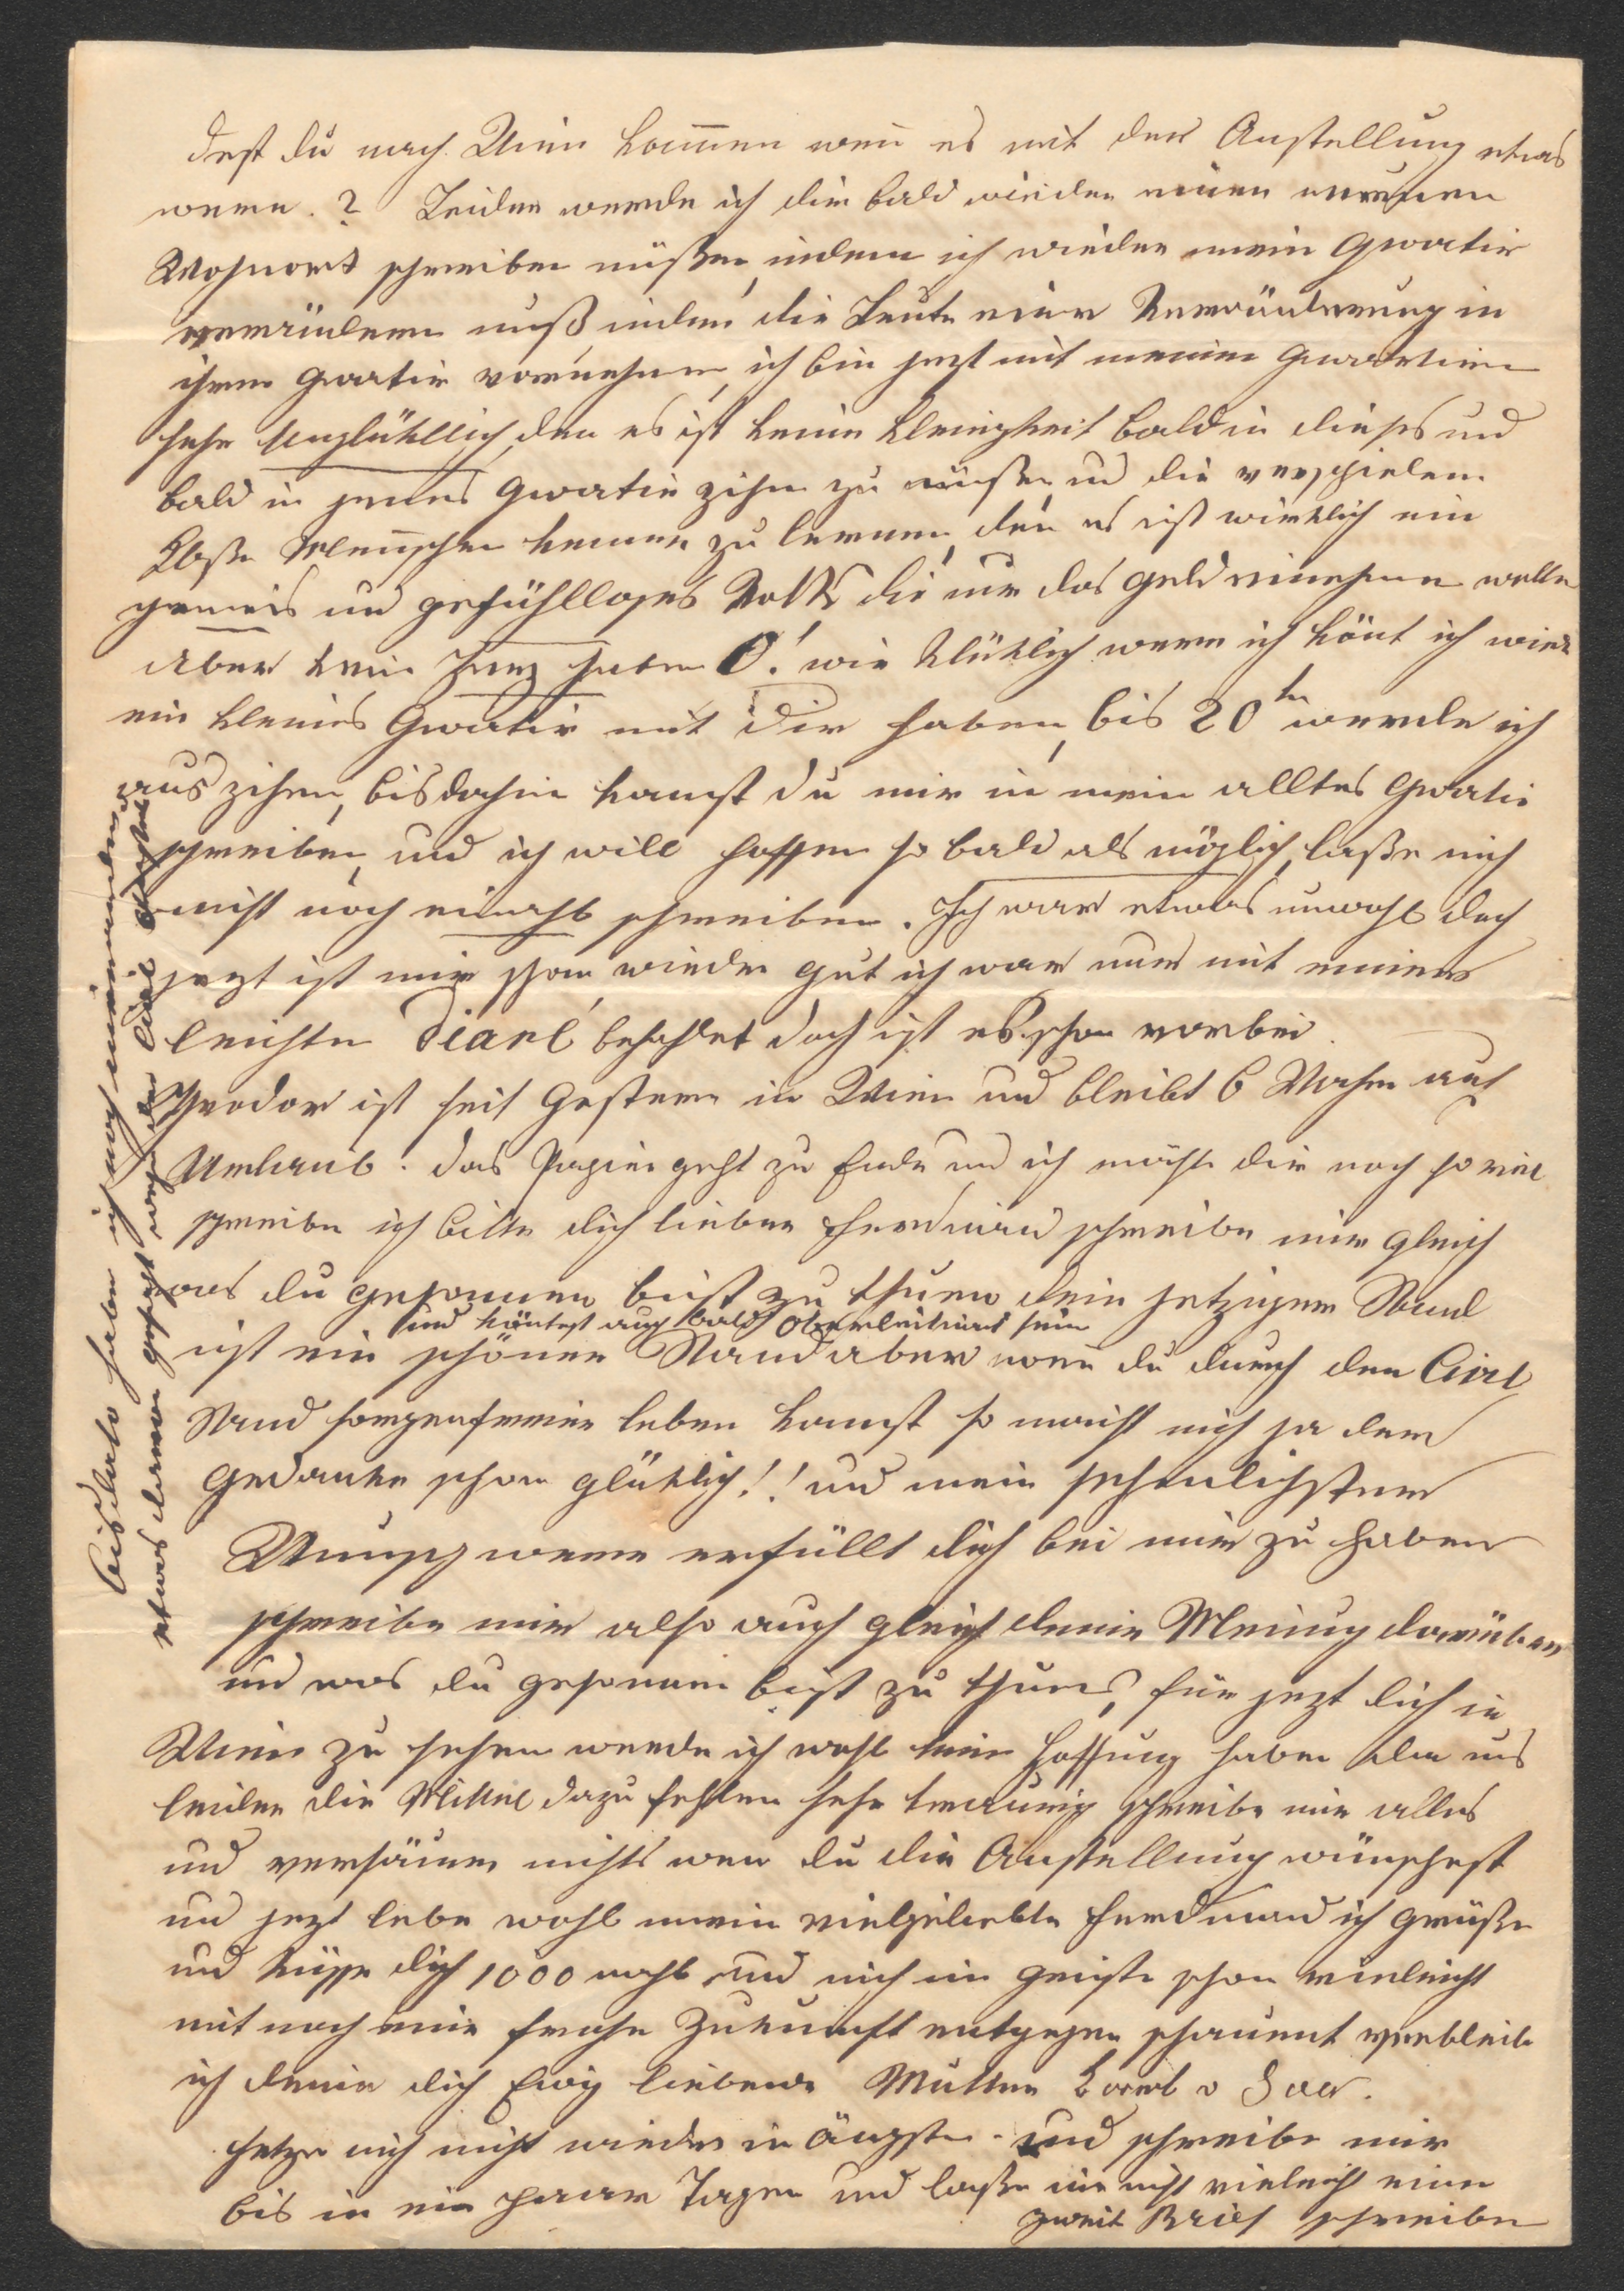 dest du nach Wien kom̄en wen̄ es mit der Anstellung etwas
were. ? Leider werde ich dir bald wieder einen neuen
Wohnort schreiben müßen, indem ich wieder mein Qwatir
verändern muß, indem die Leute eine Veränderung in
ihren Qwatir vornehmen, ich bin jezt mit meinen Qwartiren
sehr Unglüklich, den es ist keine kleinigkeit bald in dieses und
bald in jenes Qwatir zihen zu müßen und die verschieden
Menschen kennen zu lernen, den es ist wirklich ein
gemeis und gefühlloses Volk, die nur das geld einehmen wollen
aber kein Herz haben O! wie klüklich were ich könt ich wieder
ein kleines Qwatir mit Dir haben, bis 20ten werde ich
aus zihen, bis dahin kanst du mir in mein alltes Qwatir
schreiben, und ich will hoffen so bald als möglich, laße mich
nicht noch einmahl schreiben. Ich war etwas unwohl doch
jezt ist mir schon wieder gut ich war nur mit einer
leichten Diare behaftet doch ist es schon vorbei.
Theodor ist seit Gestern in Wien und bleibt 6 Wochen auf
Urlaub. das Papier geht zu Ende und ich möchte dir noch so viel
schreiben ich bitte dich lieber Ferdinand schreibe mir gleich
was du gesonnen bist zu thuen dein jetziger Stand
und köntest auch bald Oberleitnant sein
ist ein schöner Stand aber wen̄ du durch den Civil
Stand sorgenfreier leben kanst so macht mich ja der
Gedanke schon glüklich!! und mein sehnlichster
Wunsch were erfüllt dich bei mir zu haben
schreibe mir also auch gleich deine Meinung darüber
und was du gesonnen bist zu thuen, für jezt dich in
Wien zu sehen werde ich wohl keine Hoffnung haben da uns
leider die Mittel dazu fehlen sehr traurig schreibe mir alles
und versäume nichts wen du die Anstellung wünschest
und jezt lebe wohl mein vielgeliebter Ferdinand ich grüße
und küsse dich 1000 mahl und mich im geiste schon vieleicht
mit noch eine frohe Zukunft entgegen schauent verbleibe
ich deine dich Ewig liebende Mutter v Saar.
setze mich nicht wieder in ängsten. und schreibe mir
bis in ein paar Tagen und laße mir nicht vieleicht einen
zweit Brief schreiben
bis dato haben ich noch
etwas davon gesagt wegen der